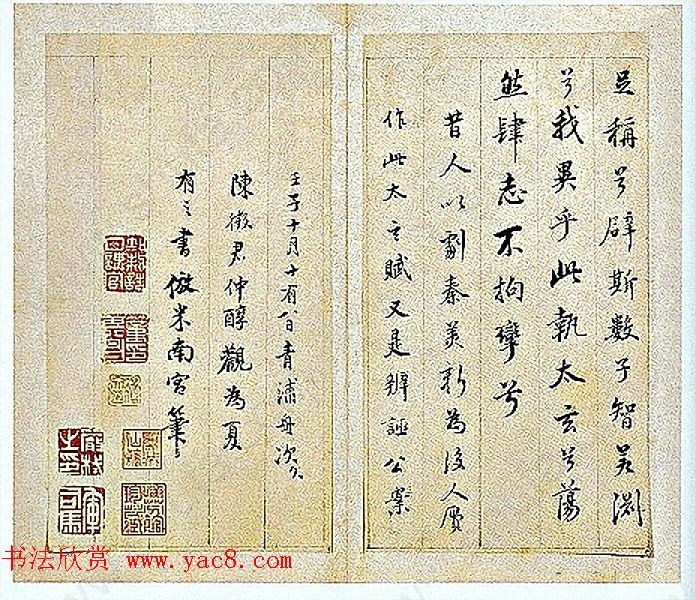 足稱兮辟斯數子智若淵
兮我異乎此執太玄兮蕩
然肆志不拘攣兮
昔人以劇秦美新為後人贗
作此太玄賦又是辨誣公案
壬子十月十有八日青浦舟次
陳徵君仲醇觀為夏
有之書倣米南宮筆
书法欣赏 www.yac8.com